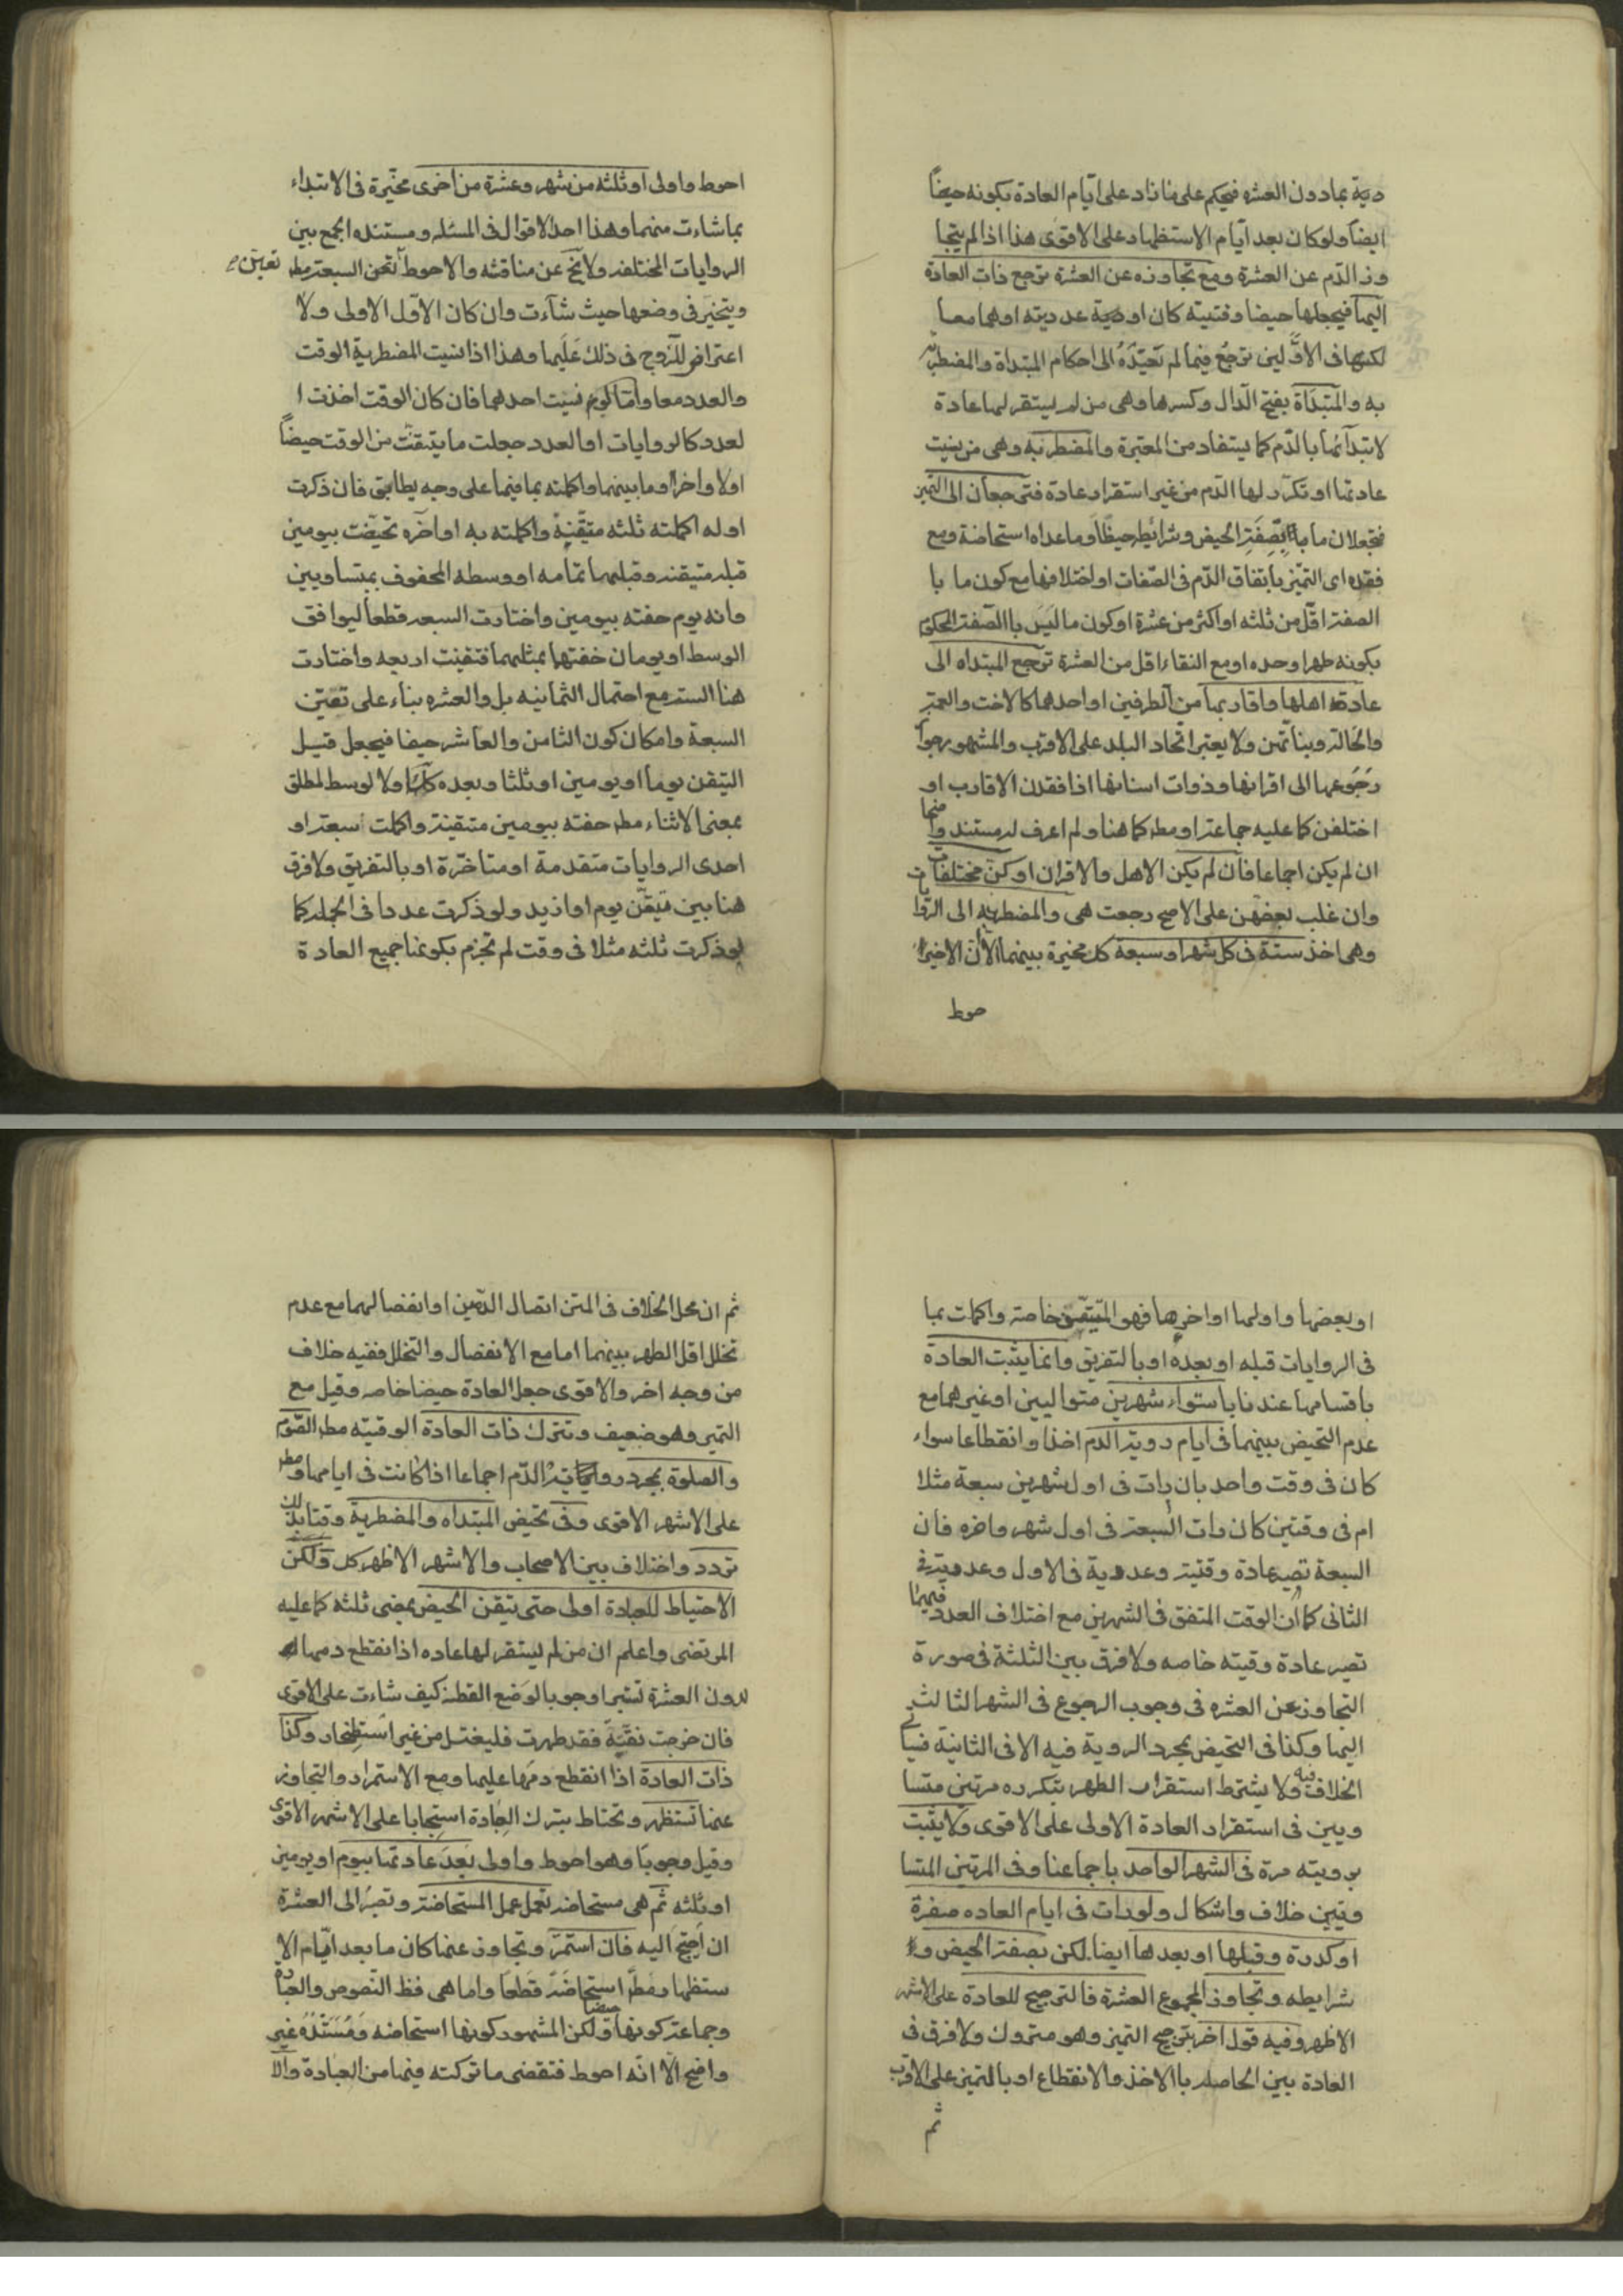 دية بمادون العشره فيحكم على ما زاد على ايّام العادة بكونه حيضاً
ايضاً ولو كان بعد ايّام الاستظهار على الاقوى هذا اذا لم يتجا
وز الدّم عن العشرة ومع تجاوزه عن العشرة ترجع ذات العادة
اليها فيجعلها حيضا وقتيته كان او عدديته او هما معا
لكنها فى الاوّلين ترجع فيما لم تعيّنه الى احكام المبتداة والمضطر
به والمبتدَاة بفتح الدال وكسرها وهى من لم يستقر لها عادة
لابتدآئها بالدّم كما يستفاد من المعتبرة والمضطربه وهى من نسيت
عادتها او تكرّر لها الدّم من غير استقرار عادة فترجعان الى التميز
فتجعلان ما بصفة الحيض وشرايطه حيضاً وما عداه استحاضة ومع
فقده اى التميّز باتفاق الدّم فى الصّفات او اختلافها مع كون ما با
الصفة اقل من ثلثه او اكثر من عشرة او كون ما ليس باالصّفة المحكوم
بكونه طهرا وحده او مع النقاء اقل من العشرة ترجع المبتداه الى
عادة اهلها واقاربها من الطرفين او احدهما كالاخت والعمة
والخالة وبناتهن ولا يعتبر اتحاد البلد على الاقرب والمشهور جواز
رجوعها الى اقرانها وذوات اسنانها اذا فقدن الاقارب او
اختلفن كما عليه جماعة او مط كما هنا ولم اعرف له مستند وا منها
ان لم يكن اجماعا فان لم يكن الاهل والاقران او كنّ مختلفات
وان غلب بعضهن على الاصح رجعت هى والمضطربه الى الروا
وهى اخذ ستة فى كل شهر او سبعة كل مخيرة بينهما الا ان الاخير ا
حوط
احوط واولى او ثلثه من شهر وعشرة من اخرى مخيّرة فى الابتداء
بما شاءت منهما وهذا احد الاقوال فى المسئله ومستنده الجمع بين
الروايات المختلفه ولا يخ عن مناقشه والاحوط تعين السبعة مط
تعين
ويتخير فى وضعها حيث شآءت وان كان الاوّل الاولى ولا
اعتراض للزوج فى ذلك عليها وهذا اذا نسيت المضطربة الوقت
والعدد معا وامّا لو نسيت احدهما فان كان الوقت اخذت ا
لعدد كالروايات او العدد جعلت ما يتيقنت من الوقت حيضاً
اولا واخرا وما بينهما واكملته بما فيها على وجه يطابق فان ذكرت
اوله اكملته ثلثه متيقنة واكملته به او اخره تحيضت بيومين
قبله متيقنه وقبلهما تمامه او وسطه المحفوف بمتساويين
وانه يوم حفته بيومين واختارت السبعه قطعا ليوافق
الوسط او يومان حفتهما بمثلهما فتيقنت اربعه واختارت
هنا الستة مع احتمال الثمانيه بل والعشره بناء على تعيّن
السبعة وامكان كون الثامن والعاشر حيضا فيجعل قبل
التيقن يوماً او يومين او ثلثا وبعده كك اولا لوسط لمطلق
بمعنى الاثناء مط حفته بيومين متيقنة واكملت سبعة او
احدى الروايات متقدمة او متاخّرة او بالتفريق ولا فرق
هنا بين تيقّن يوم او ازيد ولو ذكرت عددا فى الجمله كما
لو ذكرت ثلثه مثلا فى وقت لم تجزم بكونها جميع العادة
او بعضها واولها او اخرها فهو المتيقن خاصة واكملت بما
فى الروايات قبله او بعده او بالتفريق وانما يثبت العادة
باقسامها عندنا باستواء شهرين متواليين او غيرهما مع
عدم التحيض بينهما فى ايام روية الدم اخذا وانقطاعا سواء
كان فى وقت واحد بان رات فى اول شهرين سبعة مثلا
ام فى وقتين كان رات السبعة فى اول شهر واخره فان
السبعة تصير عادة وقتية وعددية فى الاول وعددية فى
الثانى كما ان الوقت المتفق فى الشهرين مع اختلاف العدد فيهما
تصير عادة وقتيه خاصه ولا فرق بين الثلثة فى صورة
التجاوز عن العشره فى وجوب الرجوع فى الشهر الثالث
اليها وكذا فى التحيض بمجرد الروية فيه الا فى الثانية فياتى
الخلاف فيه ولا يشترط استقرار الطهر بتكرره مرتين متسا
ويين فى استقرار العادة الاولى على الاقوى ولا يثبت
برويته مرة فى الشهر الواحد باجماعنا وفى المرتين المتسا
وتين خلاف واشكال ولو رات فى ايام العاده صفرة
او كدرة وقبلها او بعدها ايضا لكن بصفة الحيض و
شرايطه وتجاوز المجموع العشرة فالترجيح للعادة على الاشهر
الاظهر وفيه قول اخر بترجيح التميز وهو متروك ولا فرق فى
العادة بين الحاصله باالاخذ والانقطاع او بالتميز على الاقرب
ثم
ثم ان محل الخلاف فى المتن اتصال الدّمين او انفصالهما مع عدم
تخلل اقل الطهر بينهما اما مع الانفصال والتخلل ففيه خلاف
من وجه اخر والاقوى جعل العادة حيضا خاصه وقيل مع
التميز وهو ضعيف وتترك ذات العادة الوقتيّه مط الصّوم
والصلوة بمجرد روية الدّم اجماعا اذا كانت فى ايامها ومط
على الاشهر الاقوى وفى تحيض المبتداه والمضطربة وقتا بذلك
تردد واختلاف بين الاصحاب والاشهر الاظهر كل ولكن
الاحتياط للعبادة اولى حتى تيقن الحيض بمضى ثلثه كما عليه
المرتضى واعلم ان من لم يستقر لها عاده اذا نقطع دمها
لدون العشرة تستبرا وجوبا لوضع القطنه كيف شاءت على الاقوى
فان خرجت نقيّة فقد طهرت فليغتسل من غير استظهار وكذا
ذات العادة اذا انقطع دمها عليها ومع الاستمرار والتجاوز
عنها تستظهر وتحتاط بترك العبادة استحبابا على الاشهر الاقوى
وقيل وجوباً وهو احوط واولى بعد عادتها بيوم او يومين
او ثلثه ثم هى مستحاضه تعمل عمل المستحاضة وتصبر الى العشرة
ان احتج اليه فان استمرّ وتجاوز عنها كان ما بعد ايّام الا
ستظهار مط استحاضة قطعا واما هى فظ النّصوص والعبارة
وجماعة كونها حيضا ولكن المشهور كونها استحاضه ومستنده غير
واضح الّا انّه احوط فتقضى ما تركته فيها من العبادة والّا